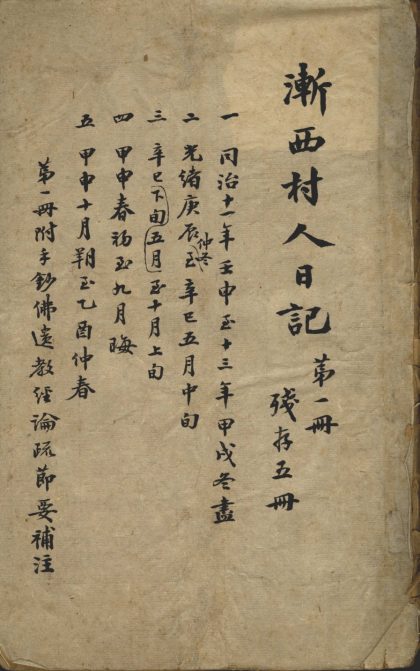 漸西村人日記 第一冊
殘存五冊
一 同治十一年壬申至十三年甲戌冬盡
二 光緒庚辰仲冬至辛巳五月中旬
三 辛巳五月下旬至十月上旬
四 甲申春初至九月晦
五 甲申十月朔至乙酉仲春
第一冊附手鈔佛遺教經論疏節要補注